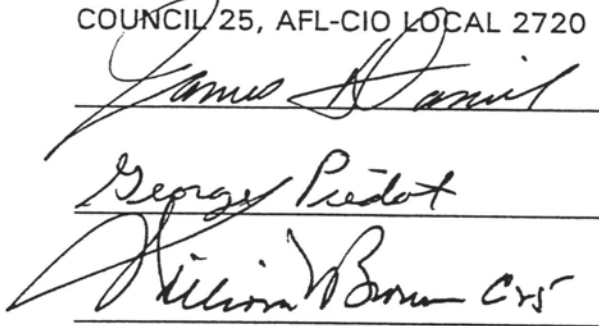 COUNCIL 25, AFL-CIO LOCAL 2720
James Daniel
George Piedot
William Brown C25